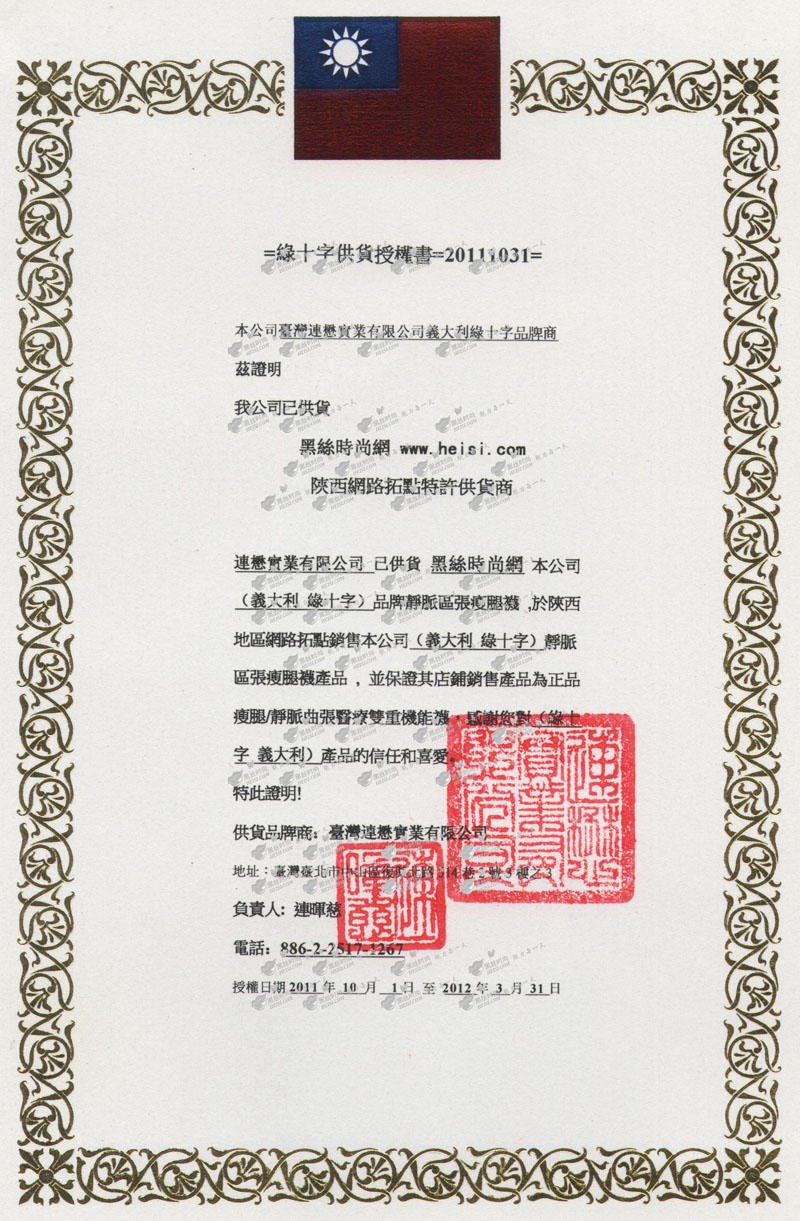 =綠十字供貨授權書=20111031=
本公司臺灣連懋實業有限公司義大利綠十字品牌商
茲證明
我公司已供貨
黑絲時尚網 www.heisi.com
陝西網路拓點特許供貨商
連懋實業有限公司 已供貨 黑絲時尚網 本公司
（義大利 綠十字）品牌靜脈區張瘦腿襪,於陝西
地區網路拓點銷售本公司（義大利 綠十字）靜脈
區張瘦腿襪產品，並保證其店鋪銷售產品為正品
瘦腿/靜脈曲張醫療雙重機能襪，感謝您對（綠十
字 義大利）產品的信任和喜愛。
特此證明!
供貨品牌商: 臺灣連懋實業有限公司
地址：臺灣臺北市中山區復興北路514巷2號3樓之3
負責人: 連暉慈
電話: 886-2-2517-1267
授權日期 2011 年 10 月 1 日 至 2012 年 3 月 31 日